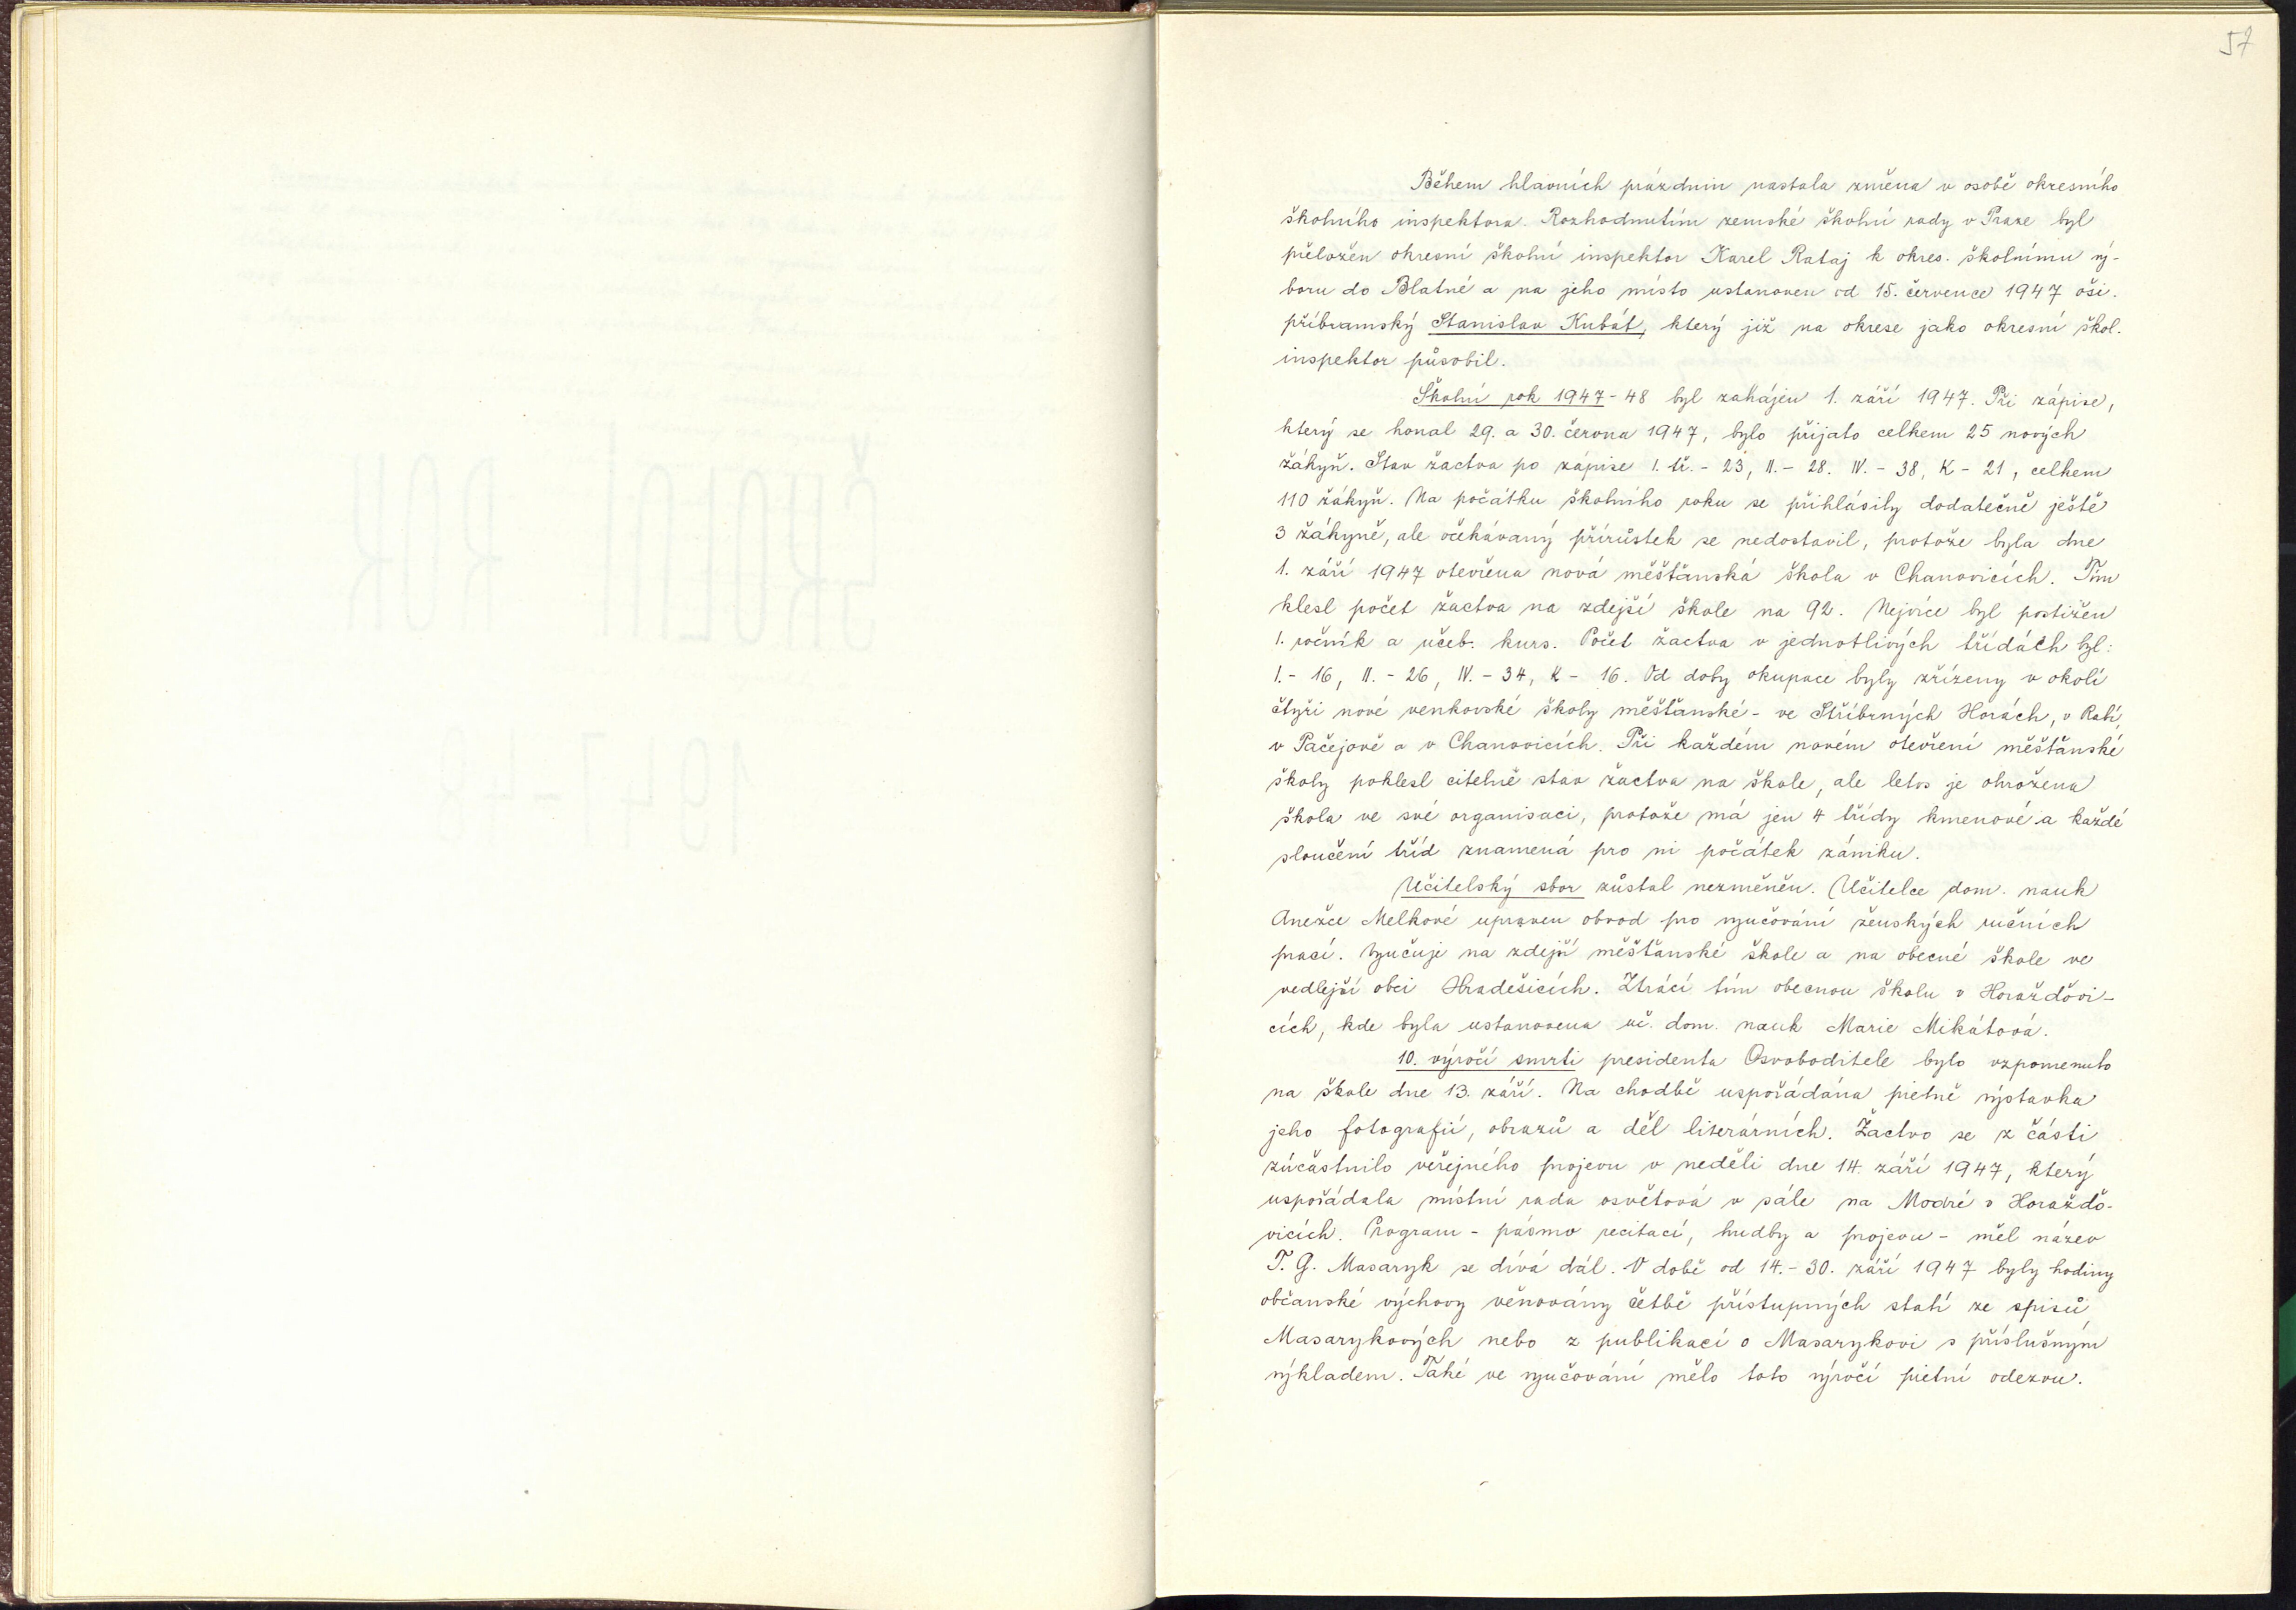 57
Během hlavních prázdnin nastala změna v osobě okresního
školního inspektora. Rozhodnutím zemské školní rady v Praze byl
přeložen okresní školní inspektor Karel Rataj k okres. školnímu vý-
boru do Blatné a na jeho místo ustanoven od 15. července 1947 oši.
příbramský Stanislav Kubát, který již na okrese jako okresní škol.
inspektor působil.
Školní rok 1947-48 byl zahájen 1. září 1947. Při zápise,
který se konal 29. a 30. června 1947, bylo přijato celkem 25 nových
žákyň. Stav žactva po zápise 1. tř. - 23, II. - 28. IV. - 38, K - 21, celkem
110 žákyň. Na počátku školního roku se přihlásily dodatečně ještě
3 žákyně, ale očekávaný přírůstek se nedostavil, protože byla dne
1. září 1947 otevřena nová měšťanská škola v Chanovicích. Tím
klesl počet žactva na zdejší škole na 92. Nejvíce byl postižen
1. ročník a učeb. kurs. Počet žactva v jednotlivých třídách byl:
I. - 16, II. - 26, IV. - 34, K - 16. Od doby okupace byly zřízeny v okolí
čtyři nové venkovské školy měšťanské - ve Stříbrných Horách, v Rabí,
v Pačejově a v Chanovicích. Při každém novém otevření měšťanské
školy poklesl citelně stav žactva na škole, ale letos je ohrožena
škola ve své organisaci, protože má jen 4 třídy kmenové a každé
sloučení tříd znamená pro ni počátek zániku.
Učitelský sbor zůstal nezměněn. Učitelce dom. nauk
Anežce Melkové upraven obvod pro vyučování ženských ručních
prací. Vyučuje na zdejší měšťanské škole a na obecné škole ve
vedlejší obci Hradešicích. Ztrácí tím obecnou školu v Horažďovi-
cích, kde byla ustanovena uč. dom. nauk Marie Mikátová.
10. výročí smrti presidenta Osvoboditele bylo vzpomenuto
na škole dne 13. září. Na chodbě uspořádána pietně výstavka
jeho fotografií, obrazů a děl literárních. Žactvo se z části
zúčastnilo veřejného projevu v neděli dne 14. září 1947, který
uspořádala místní rada osvětová v sále na Modré v Horažďo-
vicích. Program - pásmo recitací, hudby a projevu - měl název
T. G. Masaryk se dívá dál. V době od 14. - 30. září 1947 byly hodiny
občanské výchovy věnovány četbě přístupných statí ze spisů
Masarykových nebo z publikací o Masarykovi s příslušným
výkladem. Také ve vyučování mělo toto výročí pietní odezvu.